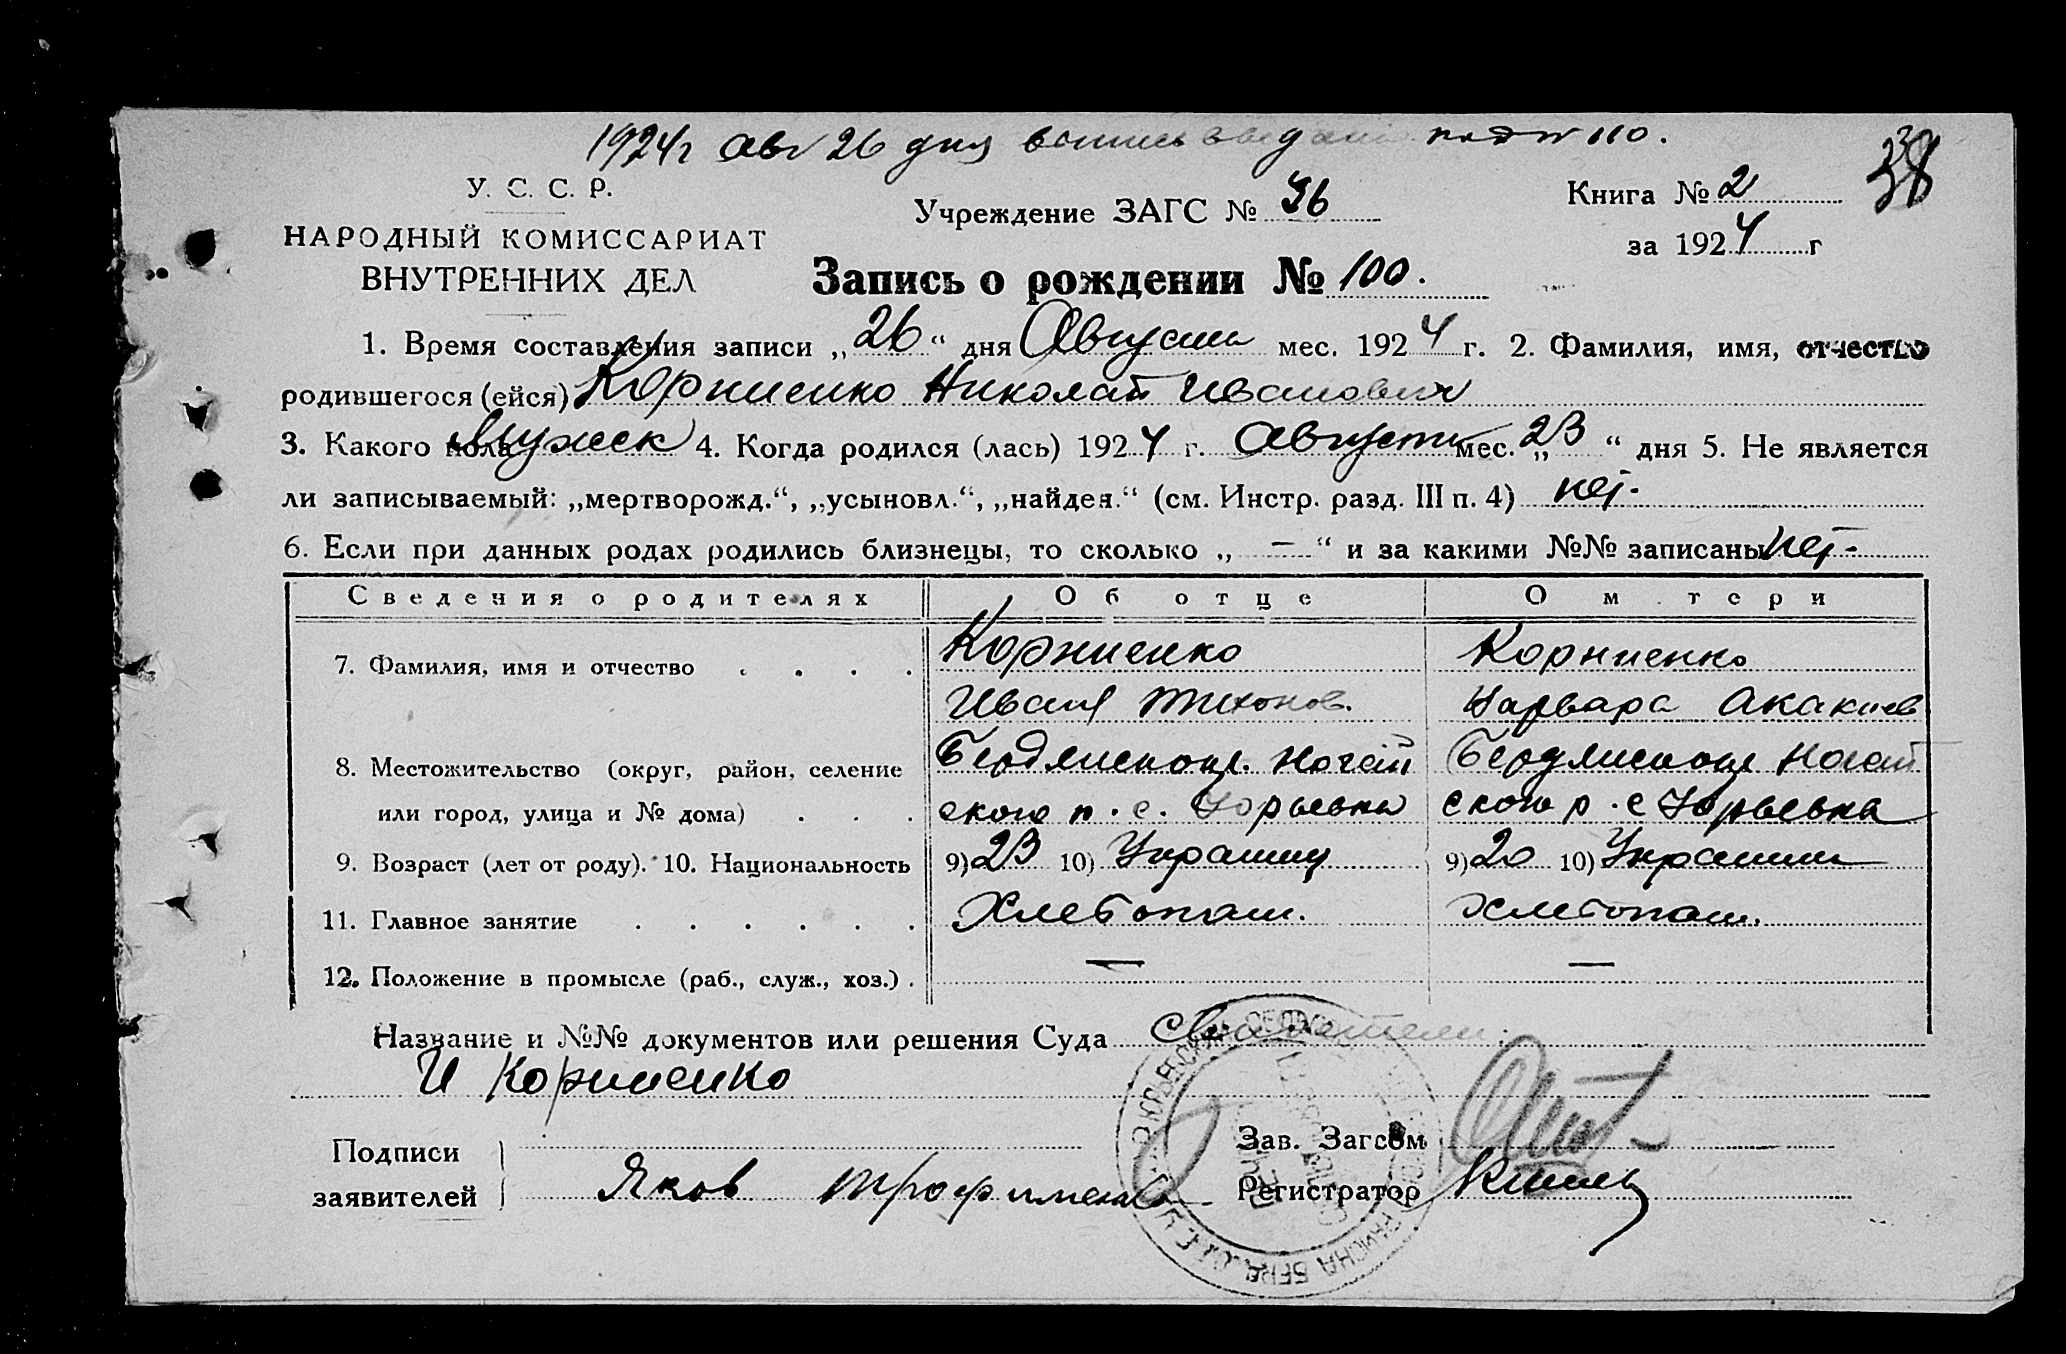 1924г авг 26 дня под № 110.
38
У. С. С. Р.
НАРОДНЫЙ КОМИССАРИАТ
ВНУТРЕННИХ ДЕЛ
Учреждение ЗАГС № 36
Книга № 2
за 1924 г
Запись о рождении № 100.
1. Время составления записи „26“ дня Августа мес. 1924 г. 2. Фамилия, имя, отчество
родившегося (ейся) Корниенко Николай Иванович
3. Какого пола Мужск 4. Когда родился (лась) 1924 г. Августа мес. „23“ дня 5. Не является
ли записываемый: „мертворожд.“, „усыновл.“, „найден.“ (см. Инстр. разд. III п. 4) нет.
6. Если при данных родах родились близнецы, то сколько „ — “ и за какими №№ записаны нет.
Сведения о родителях Об отце О м тери
7. Фамилия, имя и отчество Корниенко Корниенко
Иван Тихонов. Варвара Акакиев
8. Местожительство (округ, район, селение Бердянского Ногай Бердянского Ногай
или город, улица и № дома) ского р. с. Юрьевка ского р. с Юрьевка
9. Возраст (лет от роду). 10. Национальность 9) 23 10) Украинц 9) 20 10) Украин
11. Главное занятие Хлебопаш. Хлебопаш.
12. Положение в промысле (раб., служ., хоз.) — —
Название и №№ документов или решения Суда Свидетели:
И Корниенко
Подписи
заявителей
Яков Трофименко
Зав. Загсом
Регистратор